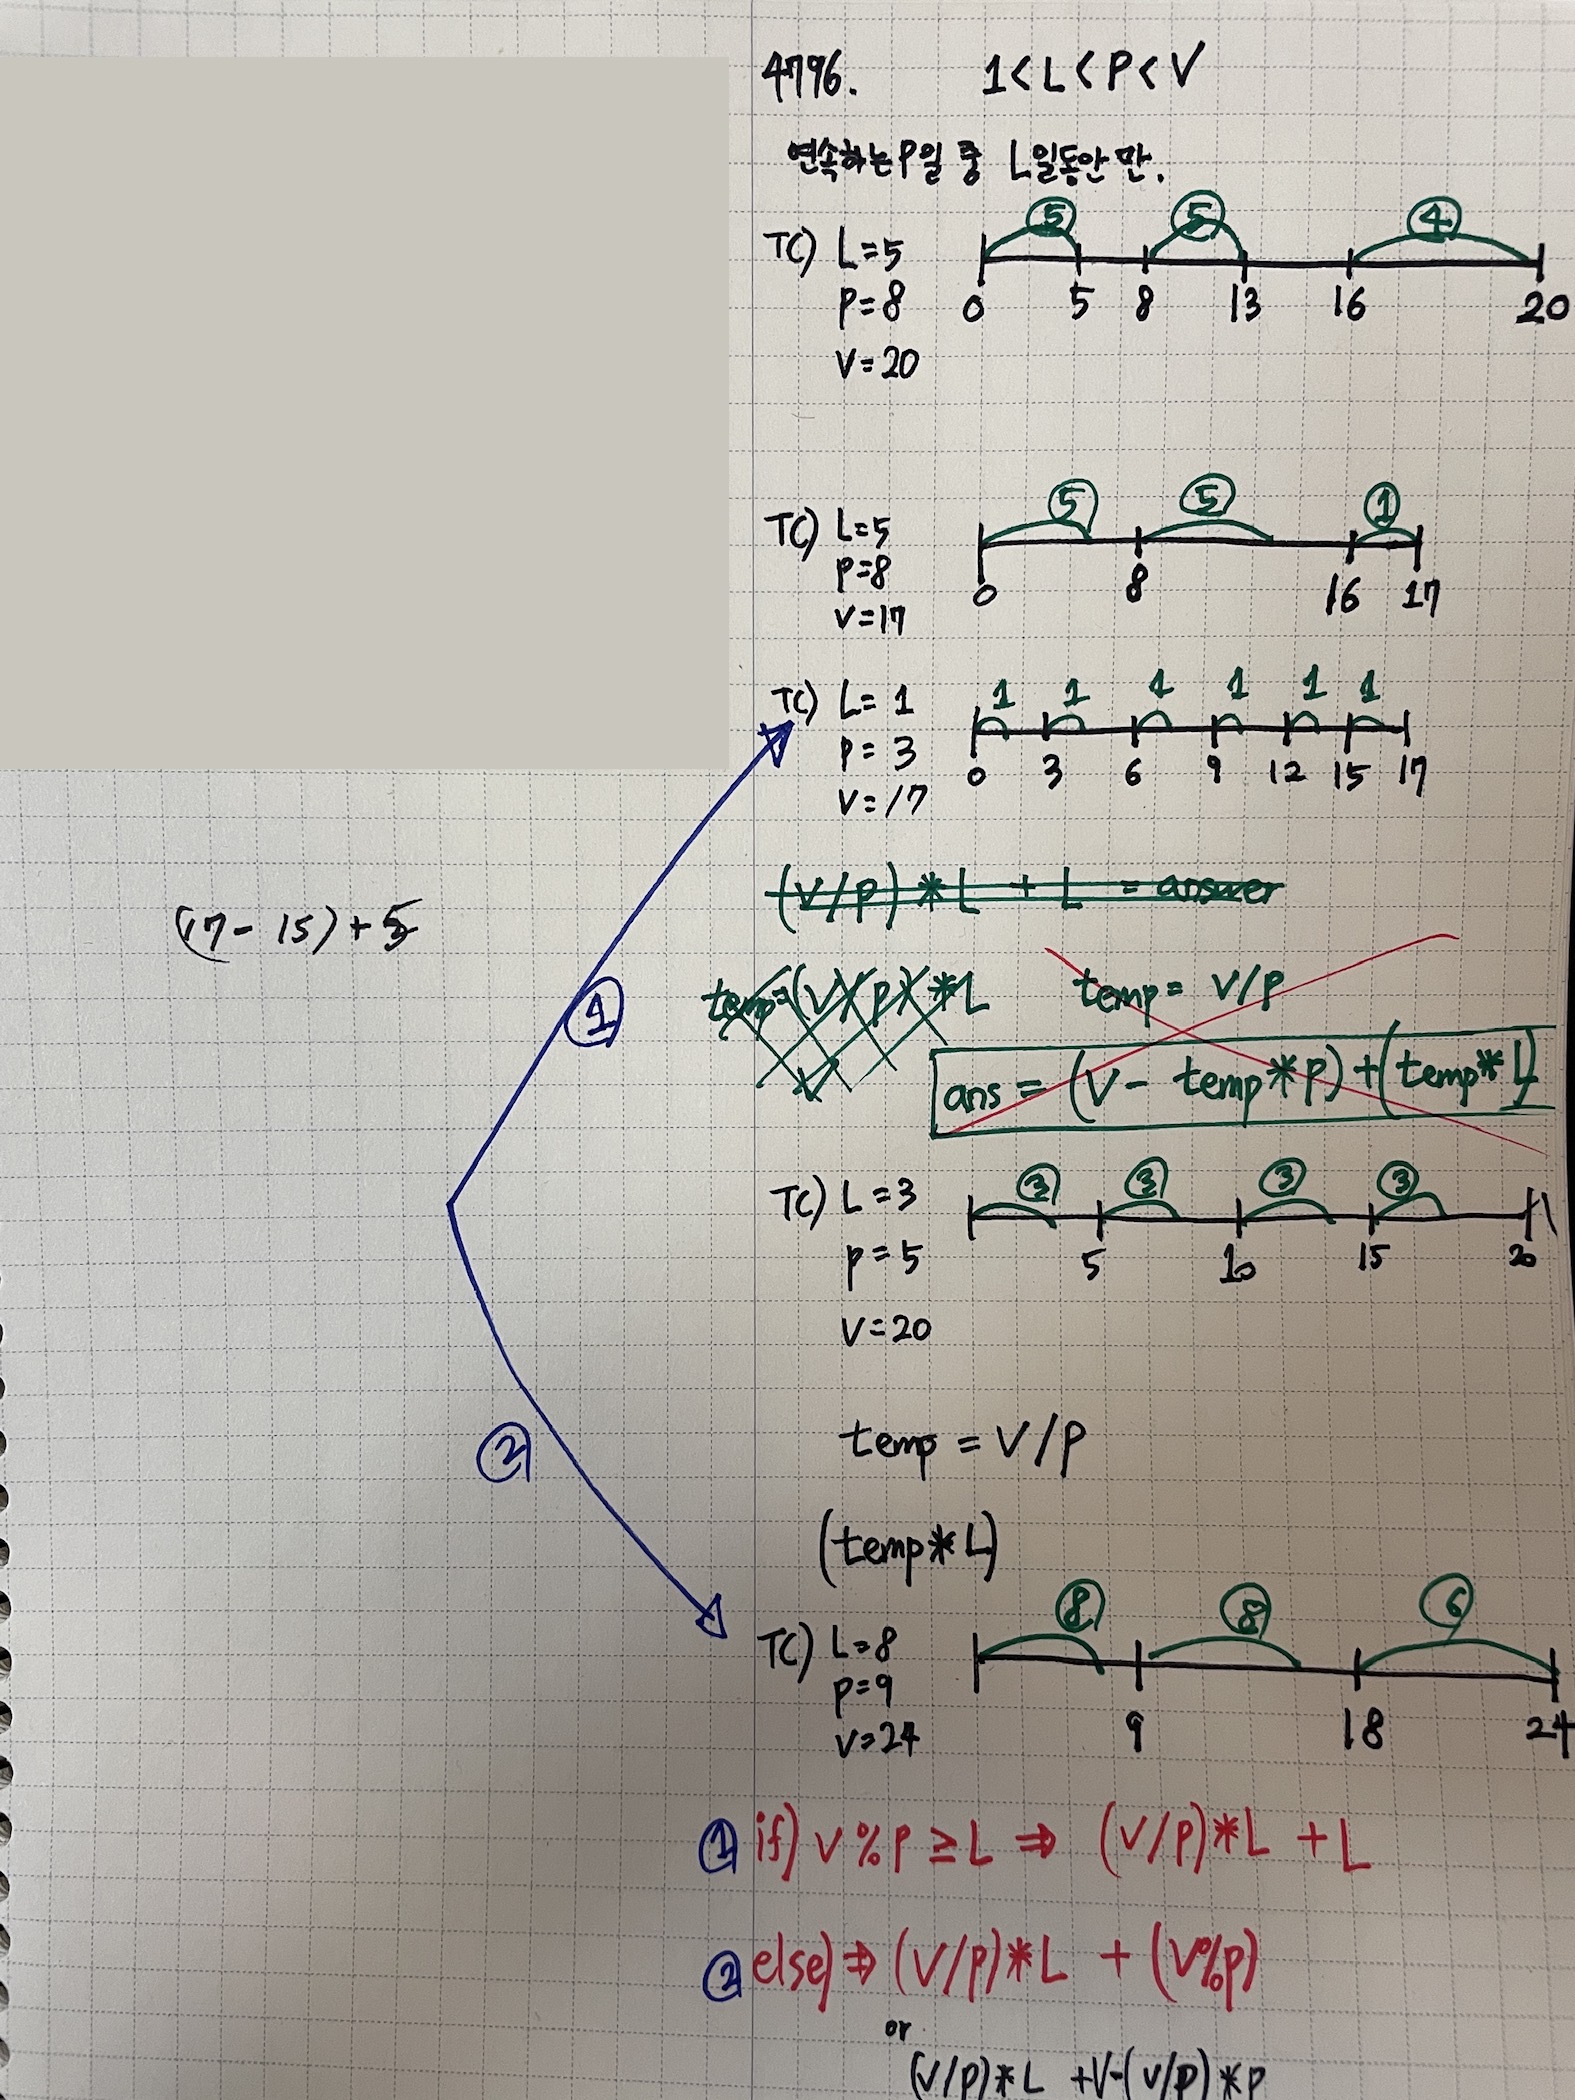 4796. 1<L<P<V
연속하는 P일 중 L일동안만.
TC) L=5
p=8
V=20
5 5 4
0 5 8 13 16 20
TC) L=5
p=8
V=17
5 5 1
0 8 16 17
TC) L=1
p=3
V=17
1 1 1 1 1 1
0 3 6 9 12 15 17
(V/p)*L + L = answer
(17-15)+5
temp=(V/p)*L
temp= V/p
ans = (V- temp*p)+(temp*L)
1
TC) L=3
p=5
V=20
3 3 3 3
5 10 15 20
2
temp = V/P
(temp*L)
TC) L=8
p=9
V=24
8 8 6
9 18 24
① if) V%P ≥L ⇒ (V/P)*L +L
② else) ⇒ (V/P)*L + (V%P)
or
(V/P)*L +V-(V/P)*P